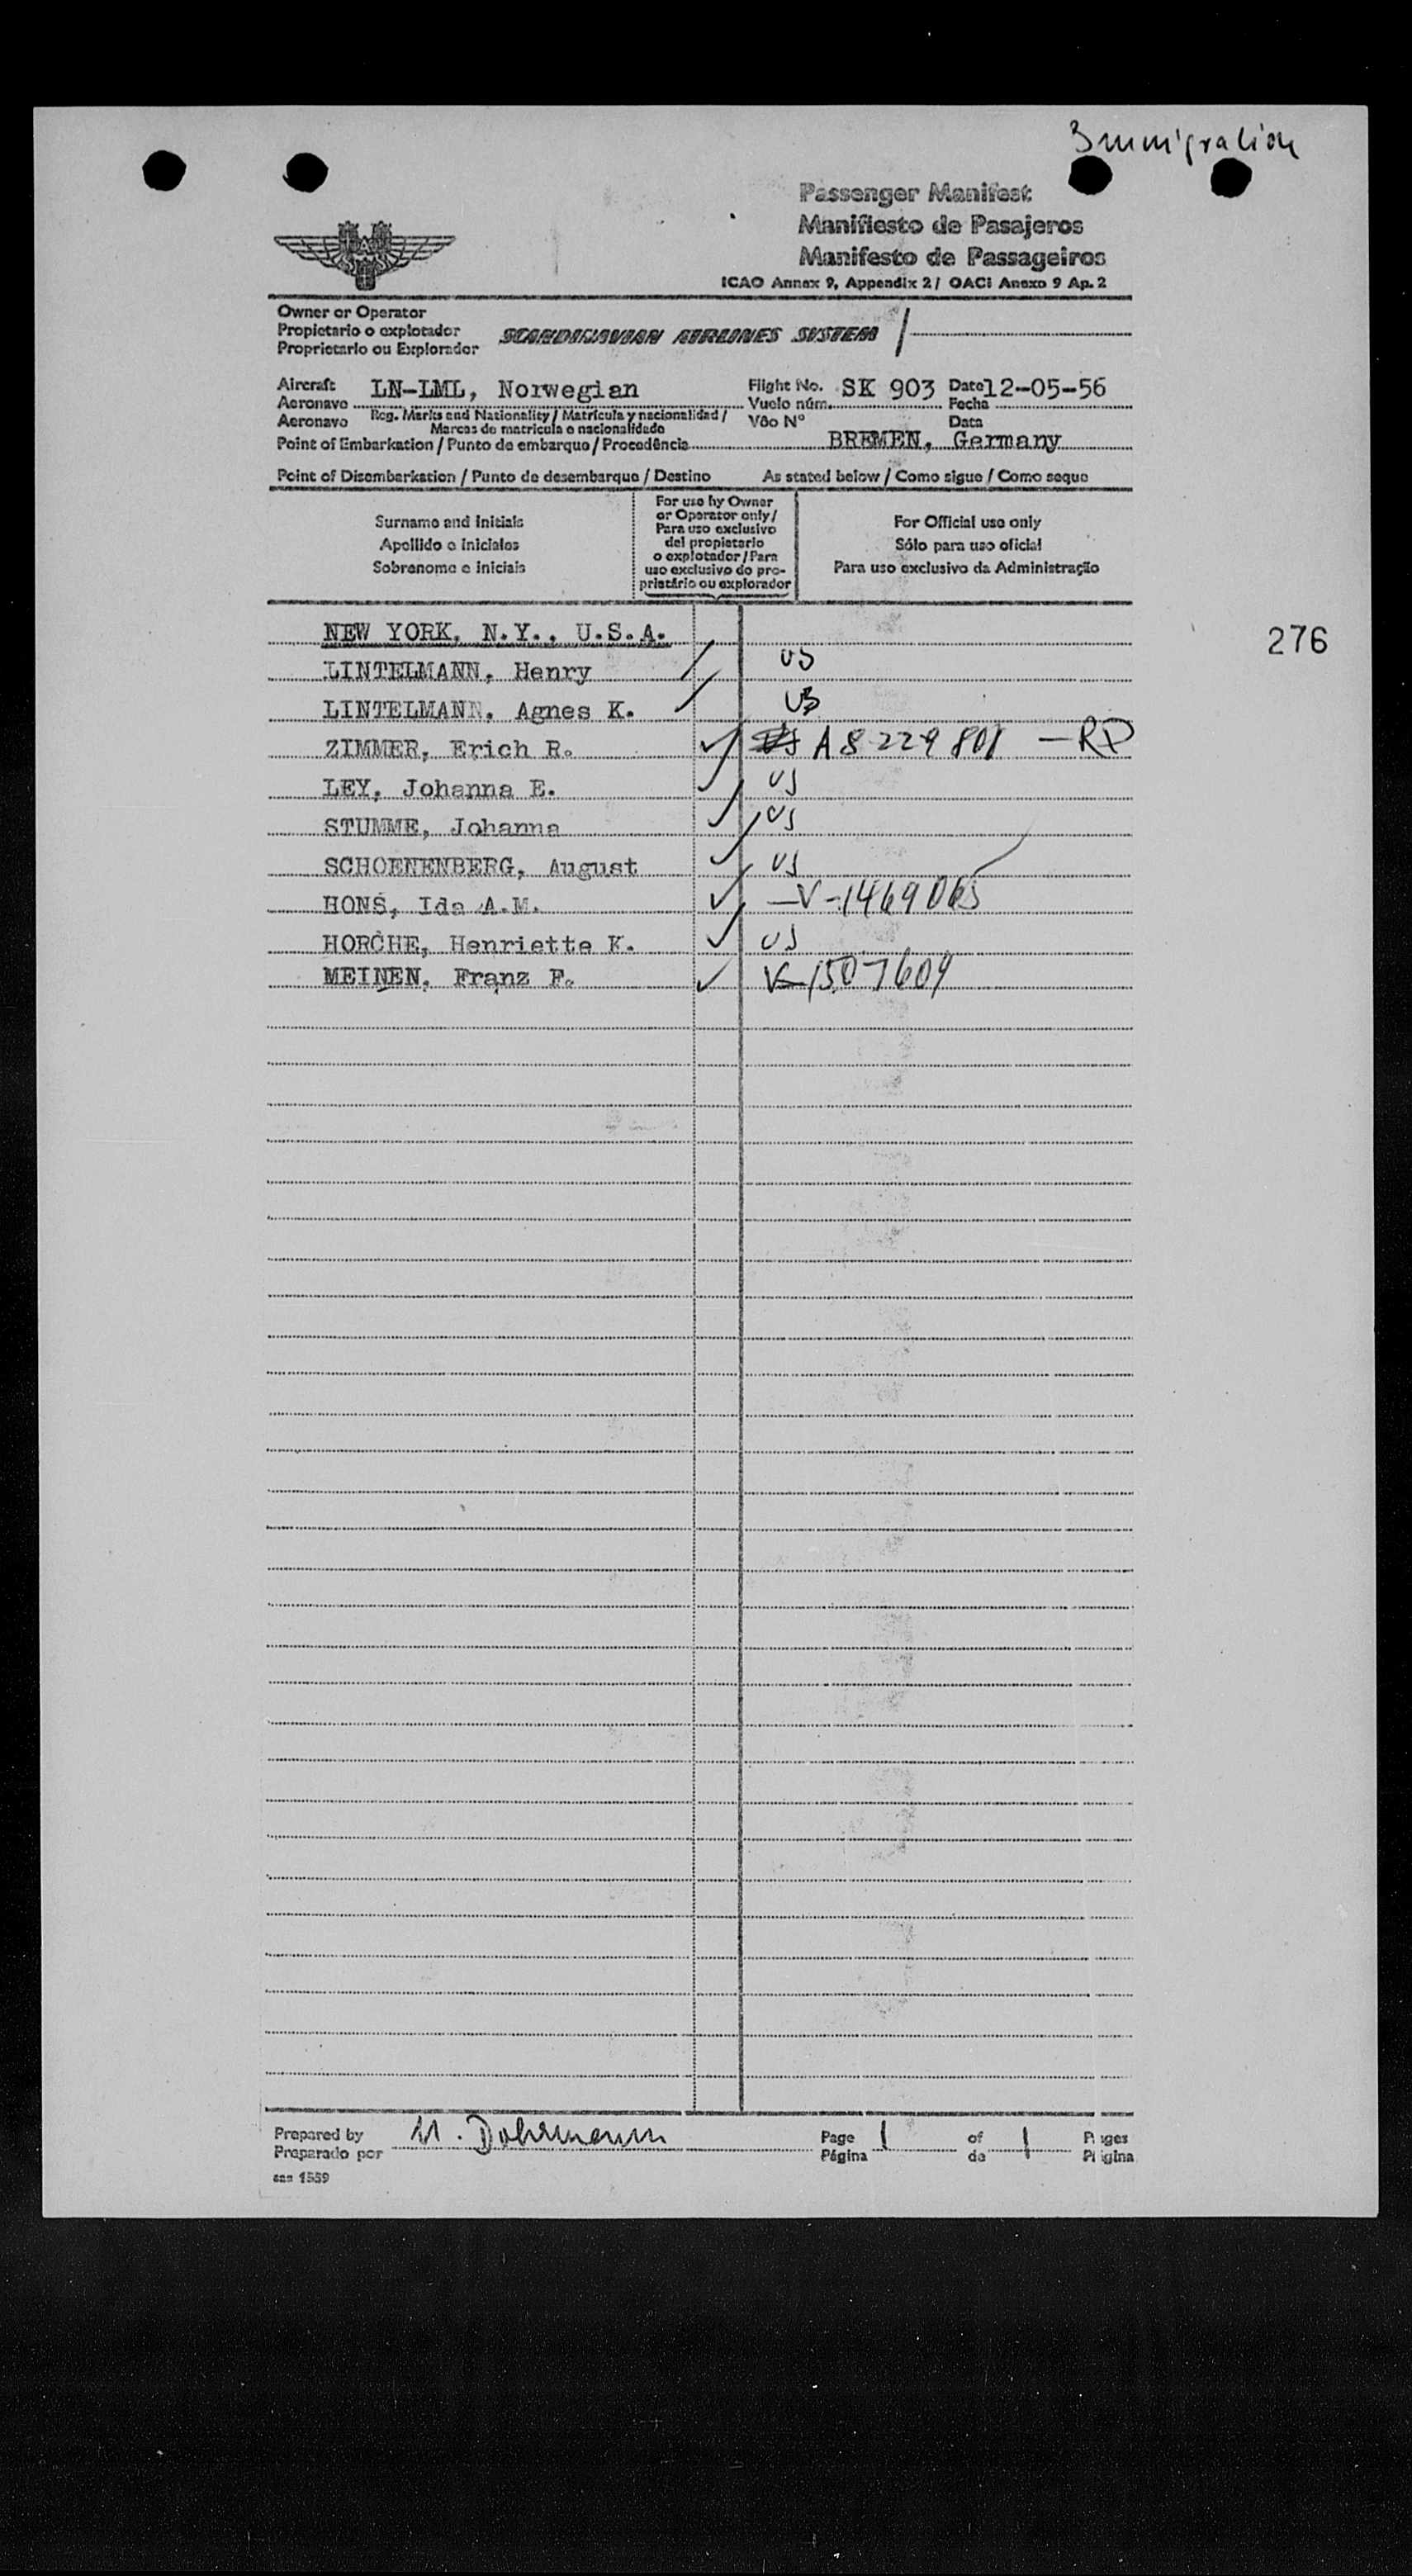 Immigration
Passenger Manifest
Manifiesto de Pasajeros
Manifesto de Passageiros
ICAO Annex 9, Appendix 2 / OACI Anexo 9 Ap. 2
SAS
Owner or Operator
Propietario o explotador
Proprietario ou Explorador
SCANDINAVIAN AIRLINES SYSTEM
Aircraft LN-LML, Norwegian Flight No. SK 903 Date 12-05-56
Aeronave Vuelo núm. Fecha
Aeronave Reg. Marks and Nationality / Matrícula y nacionalidad / Vôo Nº Data
Marcas de matricula e nacionalidade
Point of Embarkation / Punto de embarque / Procedência BREMEN, Germany
Point of Disembarkation / Punto de desembarque / Destino As stated below / Como sigue / Como segue
Surname and initials
Apellido e iniciales
Sobrenome e iniciais
For use by Owner
or Operator only /
Para uso exclusivo
del propietario
o explotador / Para
uso exclusivo do pro-
prietário ou explorador
For Official use only
Sólo para uso oficial
Para uso exclusivo da Administração
NEW YORK, N.Y., U.S.A.
276
LINTELMANN, Henry US
LINTELMANN, Agnes K. US
ZIMMER, Erich R. A 8 229 808 — RP
LEY, Johanna E. US
STUMME, Johanna US
SCHOENENBERG, August US
HONS, Ida A.M. — V-1469065
HORCHE, Henriette K. US
MEINEN, Franz F. V-1507609
Prepared by
Preparado por
Dohrmann
Page 1 of 1 Pages
Página de Página
sas 1559